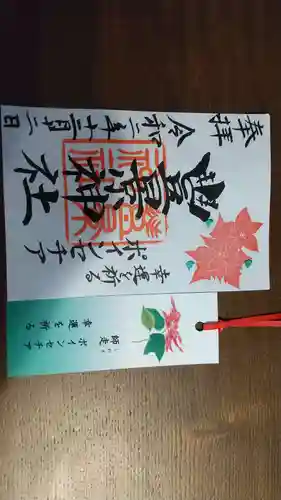 奉拝
令和二年十二月二日
豊景神社
ポインセチア
幸運を祈る
師走
ポインセチア
幸運を祈る